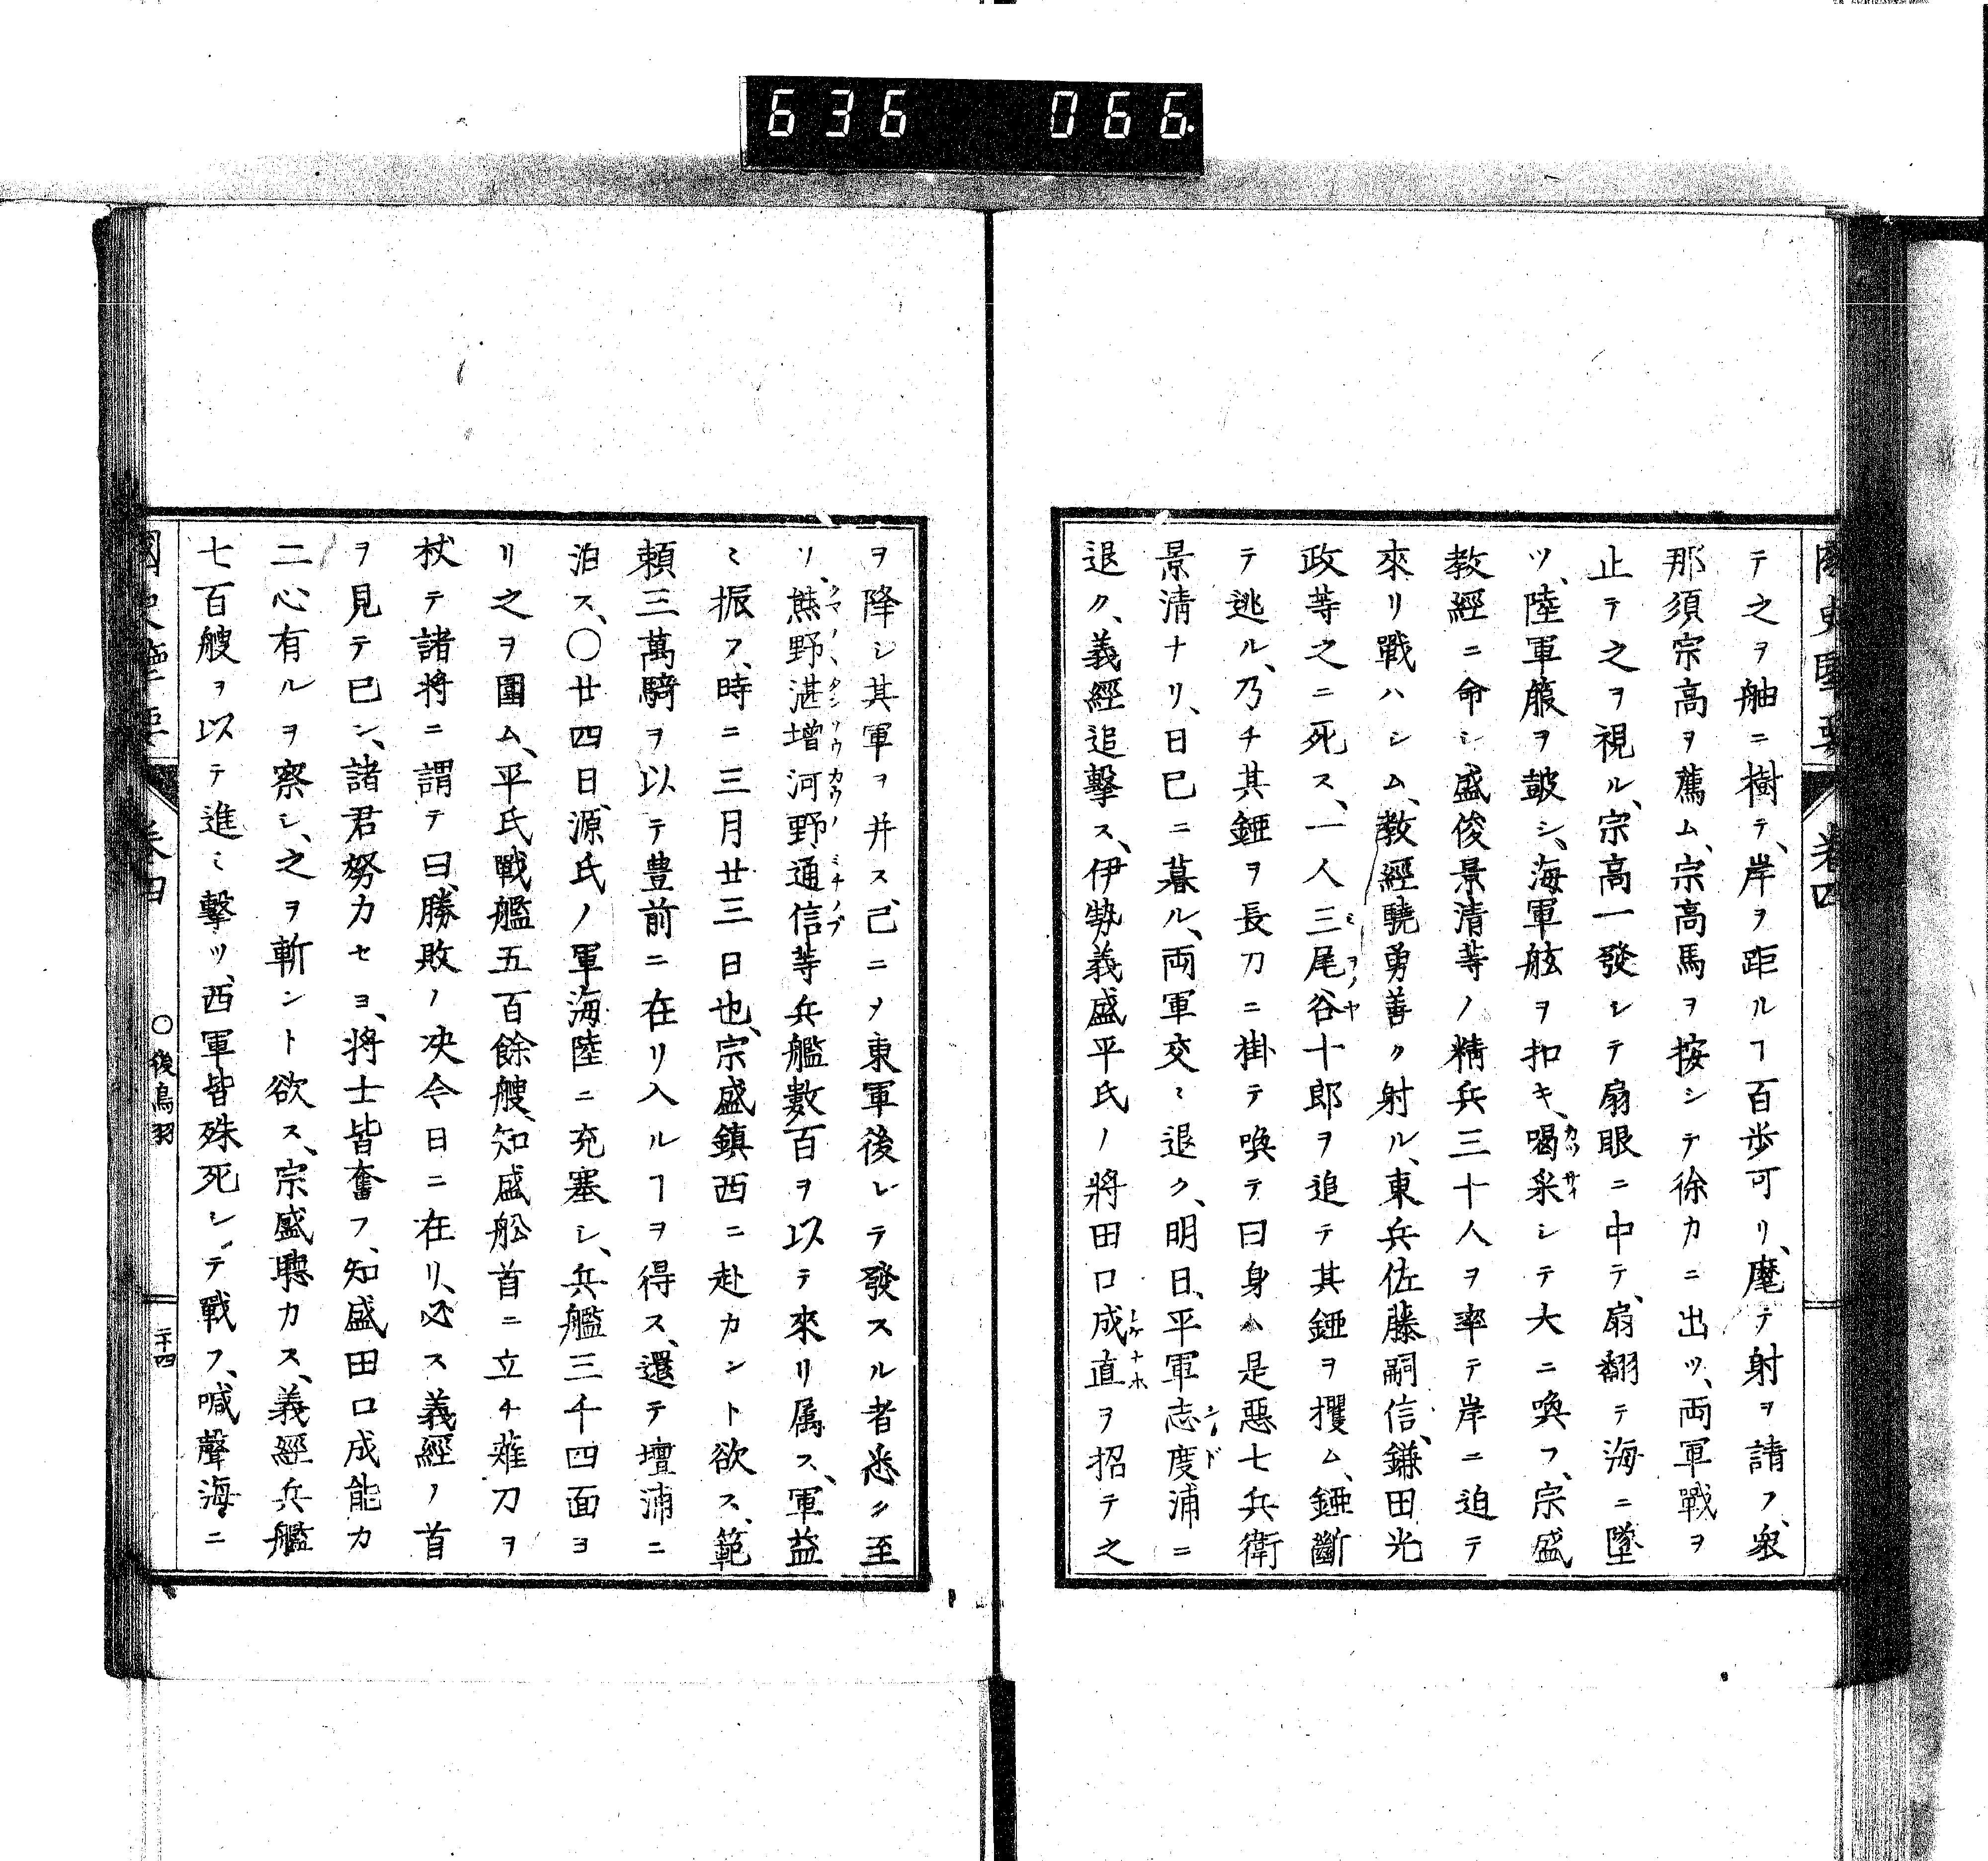 636 066
國史擥要 卷四
テ之ヲ舳ニ樹テ、岸ヲ距ルヿ百歩可リ、麾テ射ヲ請フ、衆
那須宗高ヲ薦ム、宗高馬ヲ按シテ徐カニ出ツ、両軍戰ヲ
止テ之ヲ視ル、宗高一發シテ扇眼ニ中テ、扇翻テ海ニ墜
ツ、陸軍箙ヲ皷シ、海軍舷ヲ扣キ、喝采シテ大ニ喚フ、宗盛
教經ニ命シ盛俊景清等ノ精兵三十人ヲ率テ岸ニ迫テ
來リ戰ハシム、教經驍勇善ク射ル、東兵佐藤嗣信、鎌田光
政等之ニ死ス、一人三尾谷十郎ヲ追テ其錏ヲ攫ム、錏斷
テ逃ル、乃チ其錏ヲ長刀ニ掛テ喚テ曰身ハ是惡七兵衛
景清ナリ、日已ニ暮ル、両軍交ミ退ク、明日、平軍志度浦ニ
退ク、義經追擊ス、伊勢義盛平氏ノ將田口成直ヲ招テ之
ヲ降シ其軍ヲ并ス、己ニヲ東軍後レテ發スル者悉ク至
ソ、熊野湛増河野通信等兵艦數百ヲ以テ來リ属ス、軍益
ミ振フ、時ニ三月廿三日也、宗盛鎮西ニ赴カント欲ス、範
頼三萬騎ヲ以テ豊前ニ在リ入ルヿヲ得ス、還テ壇浦ニ
泊ス、〇廿四日、源氏ノ軍海陸ニ充塞シ、兵艦三千四面ヨ
リ之ヲ圍ム、平氏戰艦五百餘艘、知盛舩首ニ立チ薙刀ヲ
杖テ諸將ニ謂テ曰、勝敗ノ决今日ニ在リ、必ス義經ノ首
ヲ見テ已ン、諸君努力セヨ、將士皆奮フ、知盛田口成能カ
二心有ルヲ察シ、之ヲ斬ント欲ス、宗盛聽カス、義經兵艦
七百艘ヲ以テ進ミ擊ツ、西軍皆殊死シテ戰フ、喊聲海ニ
國史擥要 卷四 〇後鳥羽 二十四